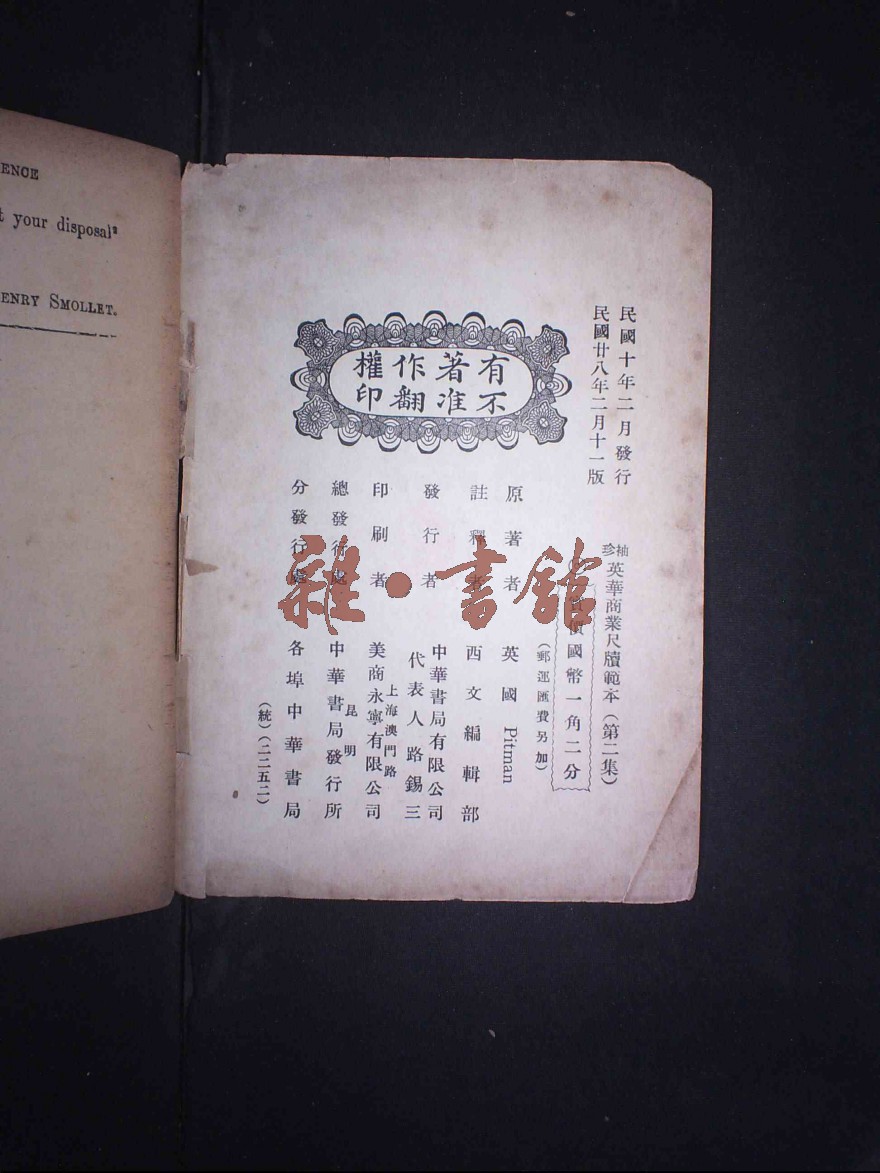 ENCE
t your disposal"
ENRY SMOLLET.
民國十年二月發行
民國廿八年二月十一版
有著作權
不准翻印
袖珍英華商業尺牘範本（第二集）
實價國幣一角二分
（郵運匯費另加）
原著者 英國 Pitman
註釋者 西文編輯部
發行者 中華書局有限公司
代表人路錫三
印刷者 上海澳門路
美商永寧有限公司
總發行處 昆明
中華書局發行所
分發行處 各埠中華書局
（統）（二二五二）
雜·書館